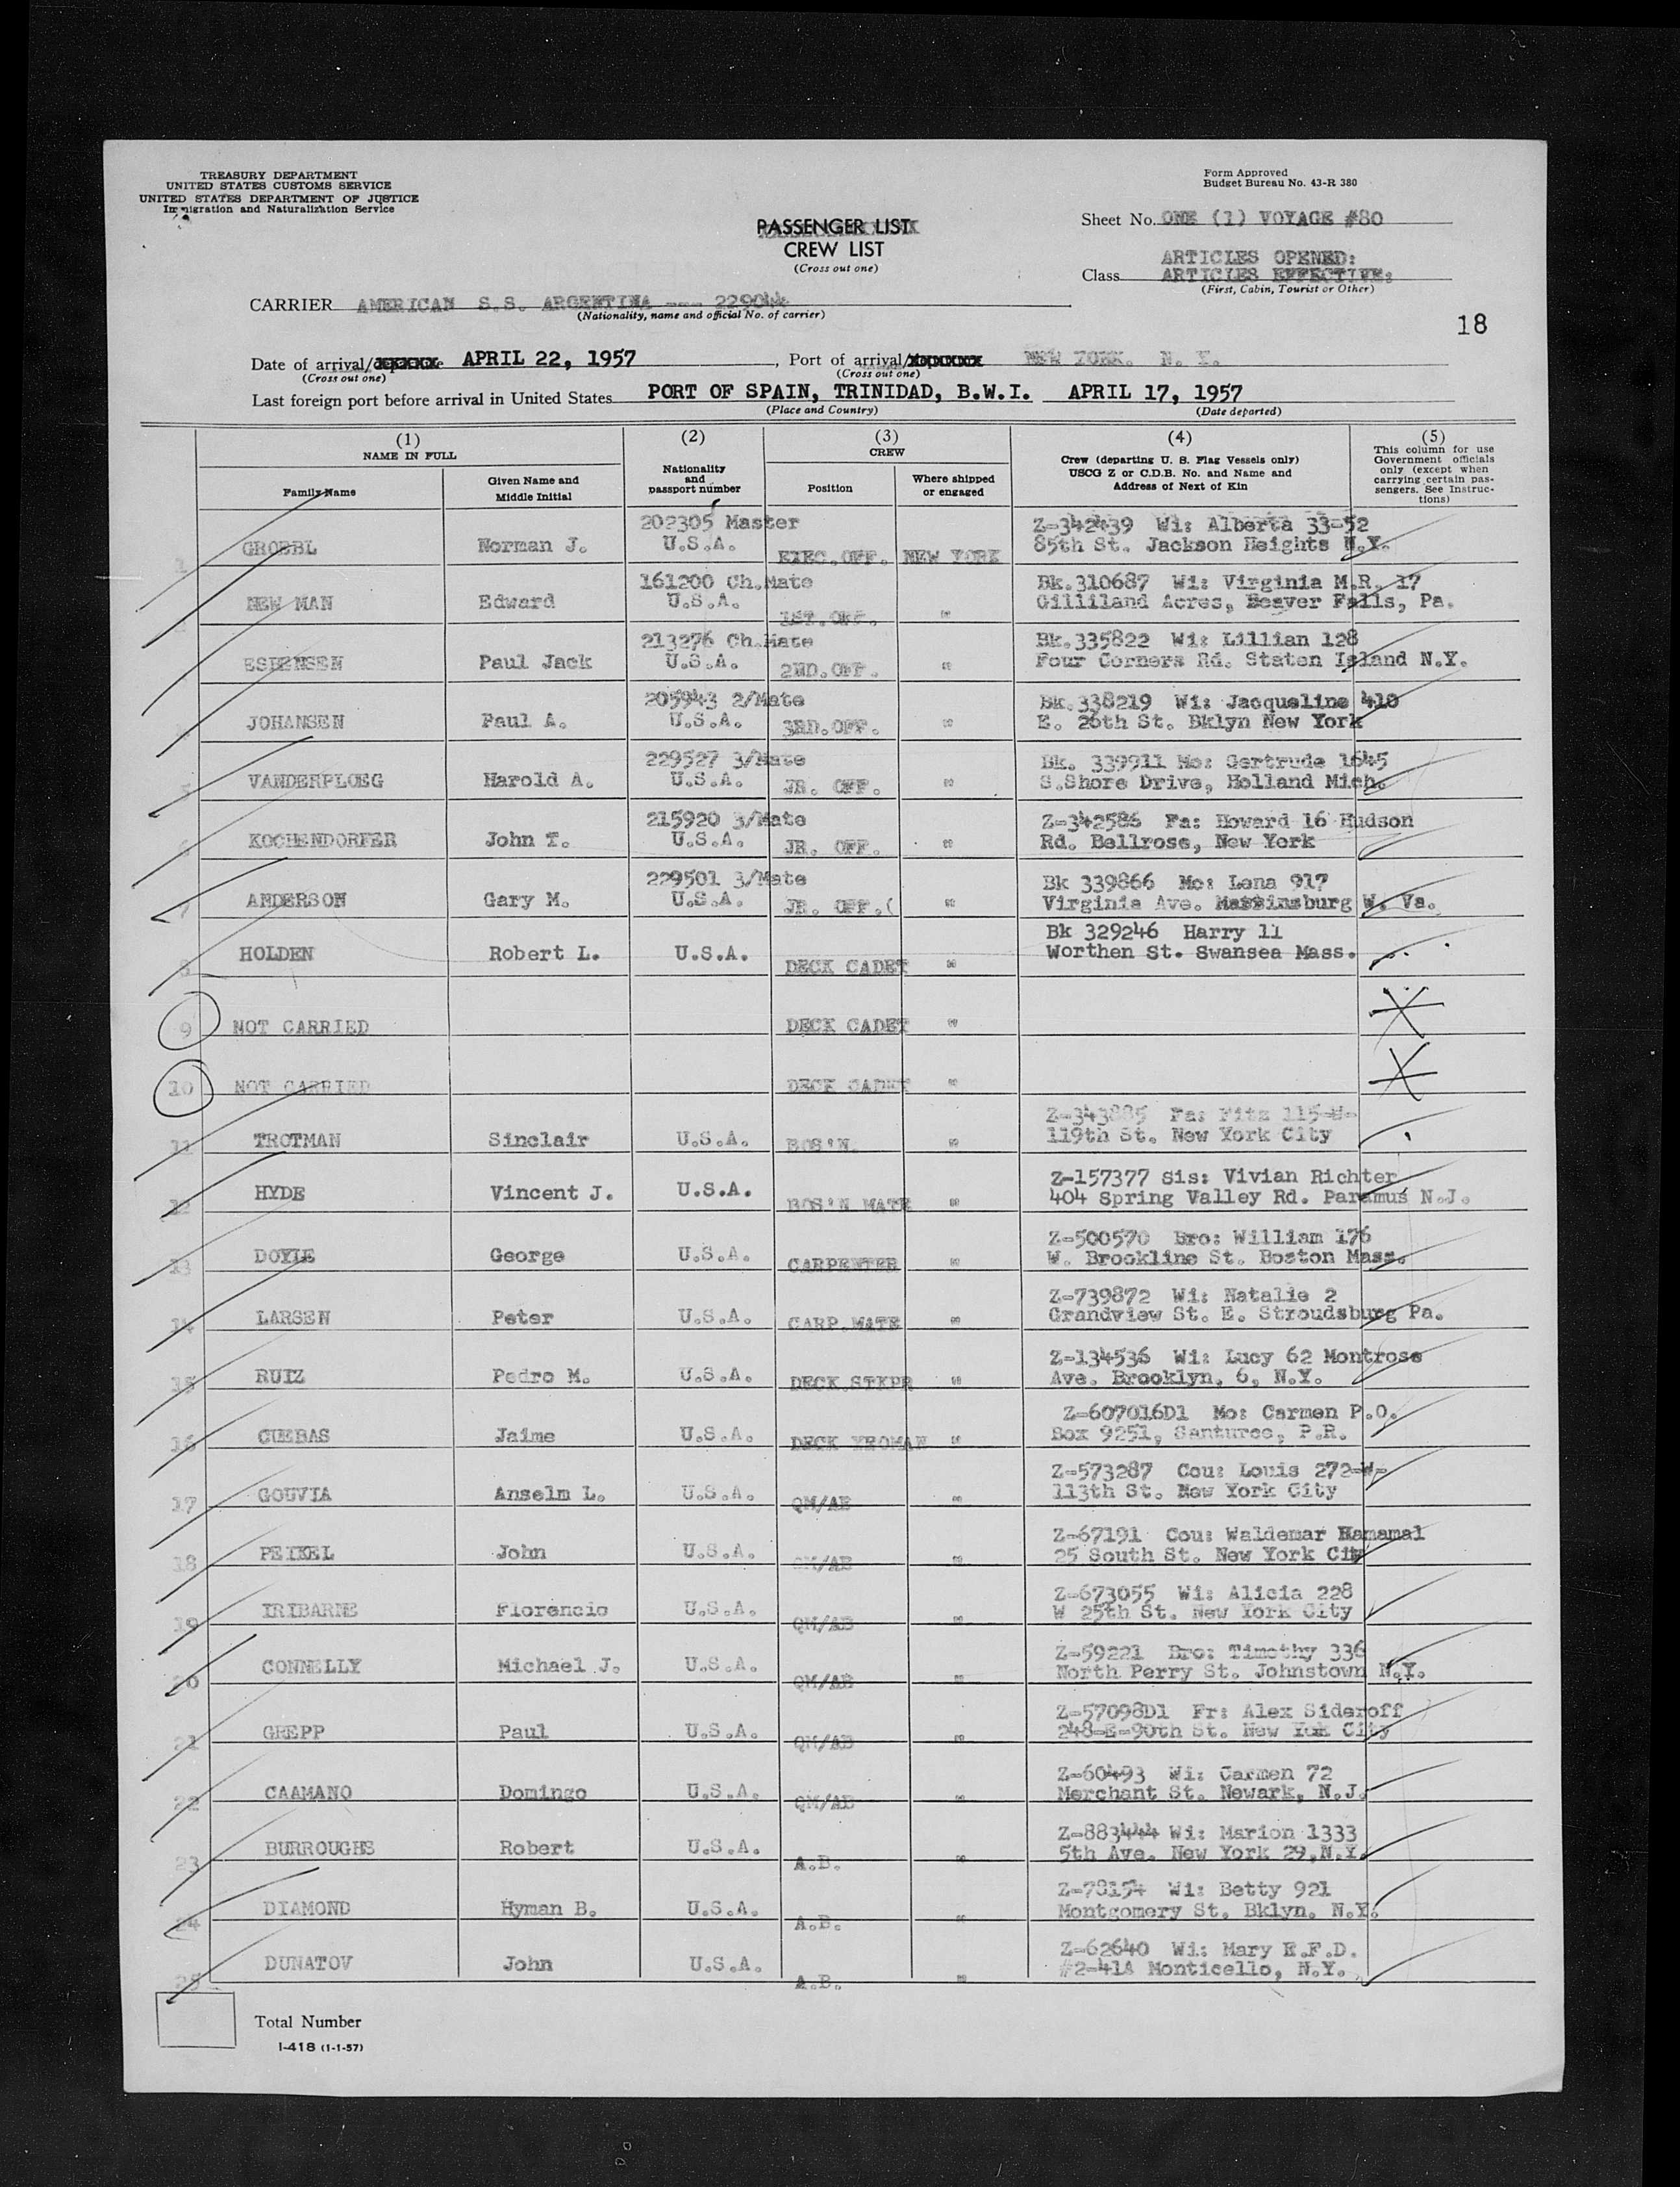 TREASURY DEPARTMENT
UNITED STATES CUSTOMS SERVICE
UNITED STATES DEPARTMENT OF JUSTICE
Immigration and Naturalization Service
Form Approved
Budget Bureau No. 43-R 380
PASSENGER LIST
CREW LIST
(Cross out one)
Sheet No. ONE (1) VOYAGE #80
ARTICLES OPENED:
Class ARTICLES EFFECTIVE:
(First, Cabin, Tourist or Other)
CARRIER AMERICAN S.S. ARGENTINA --- 229044
(Nationality, name and official No. of carrier)
18
Date of arrival/ APRIL 22, 1957, Port of arrival/ NEW YORK. N. Y.
(Cross out one) (Cross out one)
Last foreign port before arrival in United States PORT OF SPAIN, TRINIDAD, B.W.I. APRIL 17, 1957
(Place and Country) (Date departed)
(1) NAME IN FULL
Family Name
Given Name and Middle Initial
(2) Nationality and passport number
(3) CREW
Position
Where shipped or engaged
(4) Crew (departing U. S. Flag Vessels only) USCG Z or C.D.B. No. and Name and Address of Next of Kin
(5) This column for use Government officials only (except when carrying certain passengers. See Instructions)
202305 Master Z-342439 Wi: Alberta 33-52
1 GROEBL Norman J. U.S.A. EXEC.OFF. NEW YORK 85th St. Jackson Heights N.Y.
161200 Ch.Mate Bk.310687 Wi: Virginia M.R. 17
2 NEW MAN Edward U.S.A. 1ST.OFF. " Gilliland Acres, Beaver Falls, Pa.
213276 Ch.Mate Bk.335822 Wi: Lillian 128
ESBENSEN Paul Jack U.S.A. 2ND.OFF. " Four Corners Rd. Staten Island N.Y.
205943 2/Mate Bk.338219 Wi: Jacqueline 410
JOHANSEN Paul A. U.S.A. 3RD.OFF. " E. 26th St. Bklyn New York
229527 3/Mate Bk. 339911 Mo: Gertrude 1645
5 VANDERPLOEG Harold A. U.S.A. JR. OFF. " S.Shore Drive, Holland Mich.
215920 3/Mate Z-342586 Fa: Howard 16 Hudson
6 KOCHENDORFER John T. U.S.A. JR. OFF. " Rd. Bellrose, New York
229501 3/Mate Bk 339866 Mo: Lena 917
7 ANDERSON Gary M. U.S.A. JR. OFF.( " Virginia Ave. W. Va.
Bk 329246 Harry 11
8 HOLDEN Robert L. U.S.A. DECK CADET " Worthen St. Swansea Mass.
9 NOT CARRIED DECK CADET "
10 NOT CARRIED DECK CADET "
Z-343885 Fa: Fitz 115-W-
11 TROTMAN Sinclair U.S.A. BOS'N. " 119th St. New York City
Z-157377 Sis: Vivian Richter
12 HYDE Vincent J. U.S.A. BOS'N MATE " 404 Spring Valley Rd. Paramus N.J.
Z-500570 Bro: William 176
13 DOYLE George U.S.A. CARPENTER " W. Brookline St. Boston Mass.
Z-739872 Wi: Natalie 2
14 LARSEN Peter U.S.A. CARP.MATE " Grandview St. E. Stroudsburg Pa.
Z-134536 Wi: Lucy 62 Montrose
15 RUIZ Pedro M. U.S.A. DECK.STKPR " Ave. Brooklyn, 6, N.Y.
Z-607016D1 Mo: Carmen P.O.
16 CUEBAS Jaime U.S.A. DECK YEOMAN " Box 9251, Santurce, P.R.
Z-573287 Cou: Louis 272-W-
17 GOUVIA Anselm L. U.S.A. QM/AB " 113th St. New York City
Z-67191 Cou: Waldemar Hamamal
18 PEIKEL John U.S.A. QM/AB " 25 South St. New York City
Z-673055 Wi: Alicia 228
19 IRIBARNE Florencio U.S.A. QM/AB " W 25th St. New York City
Z-59221 Bro: Timothy 336
20 CONNELLY Michael J. U.S.A. QM/AB " North Perry St. Johnstown N.Y.
Z-57098D1 Fr: Alex Sideroff
21 GREPP Paul U.S.A. QM/AB " 248-E-90th St. New Yok City
Z-60493 Wi: Carmen 72
22 CAAMANO Domingo U.S.A. QM/AB " Merchant St. Newark, N.J.
Z-883444 Wi: Marion 1333
23 BURROUGHS Robert U.S.A. A.B. " 5th Ave. New York 29,N.Y.
Z-78154 Wi: Betty 921
24 DIAMOND Hyman B. U.S.A. A.B. " Montgomery St. Bklyn. N.Y.
Z-62640 Wi: Mary R.F.D.
25 DUNATOV John U.S.A. A.B. " #2-41A Monticello, N.Y.
Total Number
I-418 (1-1-57)